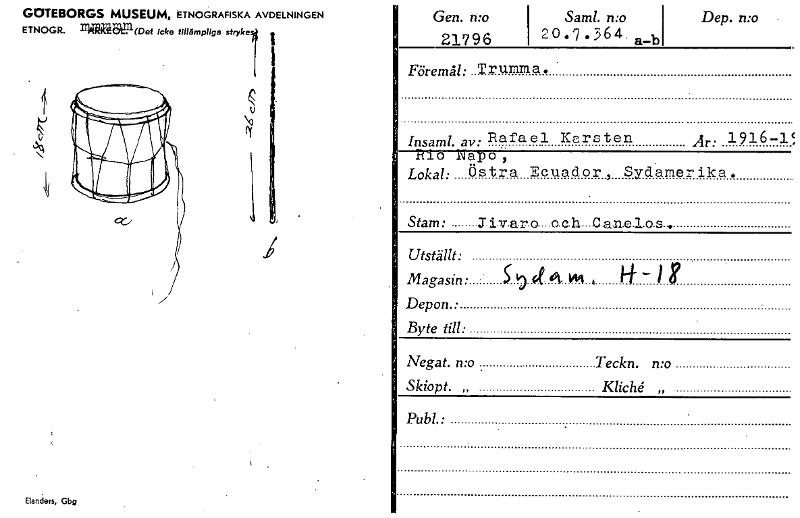 GÖTEBORGS MUSEUM, ETNOGRAFISKA AVDELNINGEN
ETNOGR. ARKEOL. (Det icke tillämpliga strykes)
18 cm
26 cm
a
b
Elanders, Gbg
Gen. n:o Saml. n:o Dep. n:o
21796 20.7.364 a-b
Föremål: Trumma.
Insaml. av: Rafael Karsten År: 1916-19
Rio Napo,
Lokal: Östra Ecuador, Sydamerika.
Stam: Jivaro och Canelos.
Utställt:
Magasin: Sydam. H-18
Depon.:
Byte till:
Negat. n:o Teckn. n:o
Skiopt. „ Kliché „
Publ.: